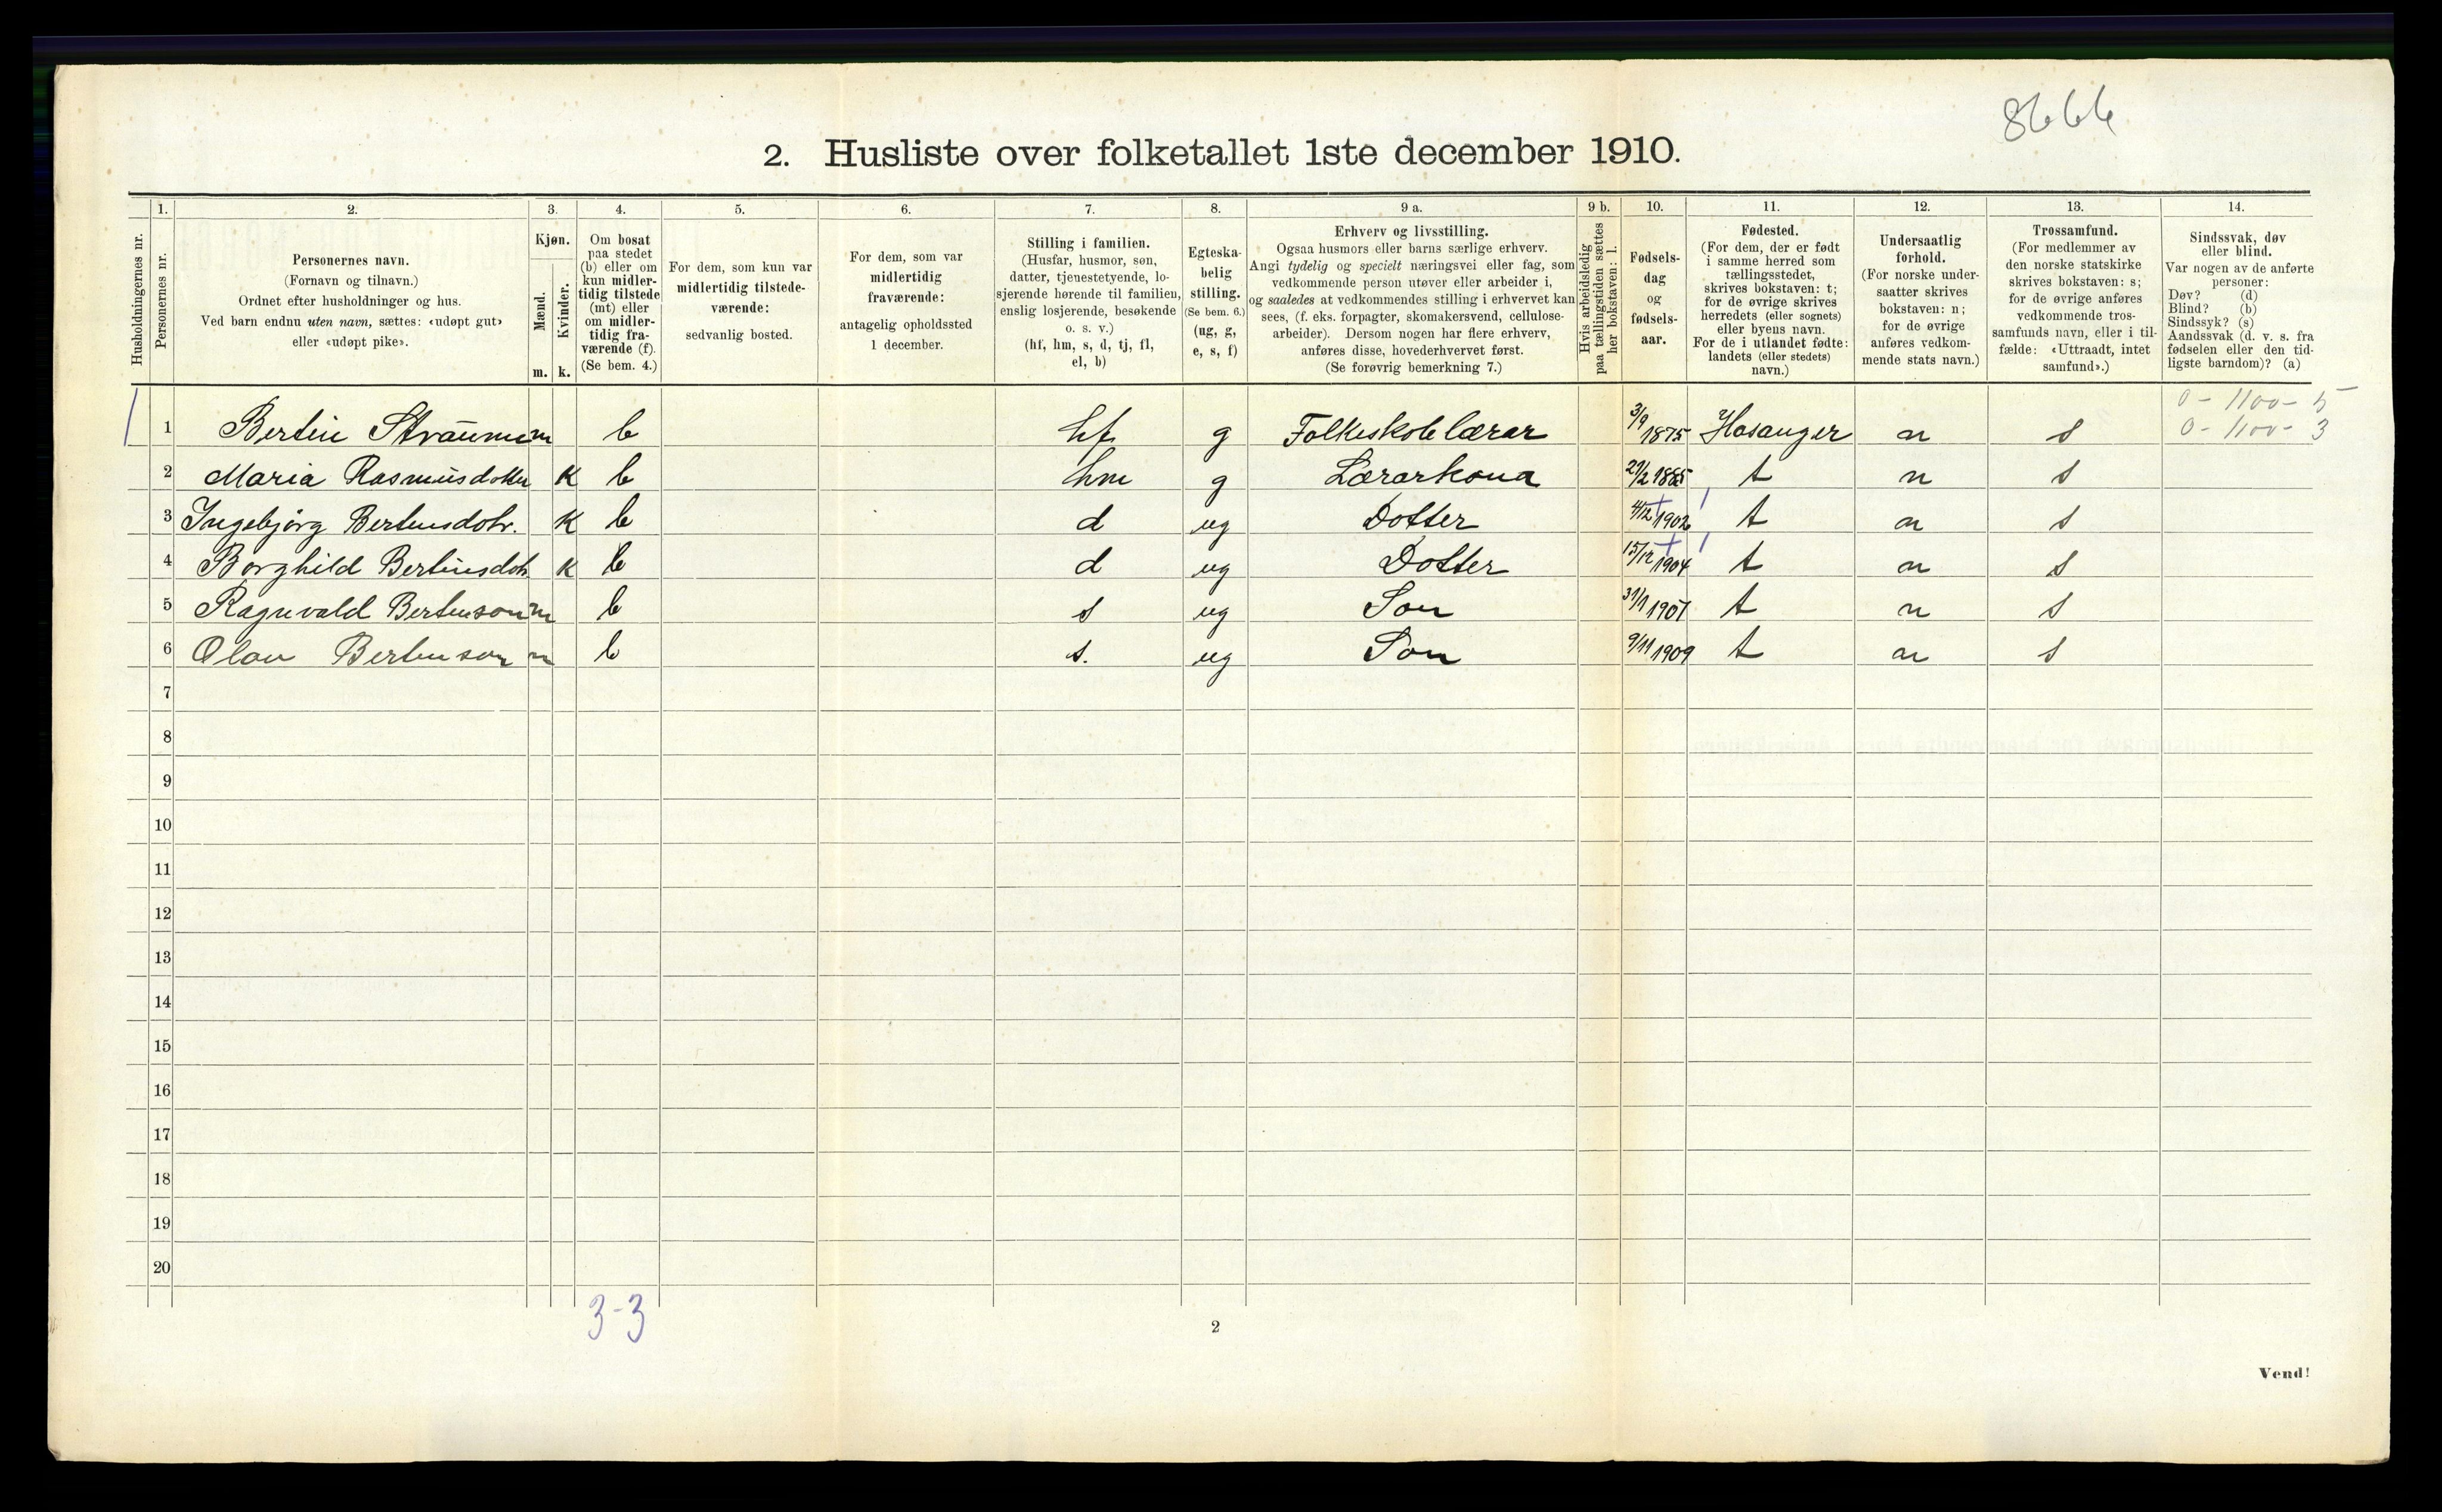 8666
2. Husliste over folketallet 1ste december 1910.
Husholdningernes nr.
1.
Personernes nr.
2.
Personernes navn.
(Fornavn og tilnavn.)
Ordnet efter husholdninger og hus.
Ved barn endnu uten navn, sættes: «udøpt gut»
eller «udøpt pike».
3.
Kjøn.
Mænd.
Kvinder.
m. k.
4.
Om bosat
paa stedet
(b) eller om
kun midler-
tidig tilstede
(mt) eller
om midler-
tidig fra-
værende (f).
(Se bem. 4.)
5.
For dem, som kun var
midlertidig tilstede-
værende:
sedvanlig bosted.
6.
For dem, som var
midlertidig
fraværende:
antagelig opholdssted
1 december.
7.
Stilling i familien.
(Husfar, husmor, søn,
datter, tjenestetyende, lo-
sjerende hørende til familien,
enslig losjerende, besøkende
o. s. v.)
(hf, hm, s, d, tj, fl,
el, b)
8.
Egteska-
belig
stilling.
(Se bem. 6.)
(ug, g,
e, s, f)
9 a.
Erhverv og livsstilling.
Ogsaa husmors eller barns særlige erhverv.
Angi tydelig og specielt næringsvei eller fag, som
vedkommende person utøver eller arbeider i,
og saaledes at vedkommendes stilling i erhvervet kan
sees, (f. eks. forpagter, skomakersvend, cellulose-
arbeider). Dersom nogen har flere erhverv,
anføres disse, hovederhvervet først.
(Se forøvrig bemerkning 7.)
9 b.
Hvis arbeidsledig
paa tællingstiden sættes
her bokstaven: l.
10.
Fødsels-
dag
og
fødsels-
aar.
11.
Fødested.
(For dem, der er født
i samme herred som
tællingsstedet,
skrives bokstaven: t;
for de øvrige skrives
herredets (eller sognets)
eller byens navn.
For de i utlandet fødte:
landets (eller stedets)
navn.)
12.
Undersaatlig
forhold.
(For norske under-
saatter skrives
bokstaven: n;
for de øvrige
anføres vedkom-
mende stats navn.)
13.
Trossamfund.
(For medlemmer av
den norske statskirke
skrives bokstaven: s;
for de øvrige anføres
vedkommende tros-
samfunds navn, eller i til-
fælde: «Uttraadt, intet
samfund».)
14.
Sindssvak, døv
eller blind.
Var nogen av de anførte
personer:
Døv? (d)
Blind? (b)
Sindssyk? (s)
Aandssvak (d. v. s. fra
fødselen eller den tid-
ligste barndom)? (a)
0 - 1100 - 5
1 Bertin Straume m b hf g Folkeskolelærar 3/9 1875 Hosanger n s 0 - 1100 - 3
2 Maria Rasmusdotter k b hm g Lærarkona 1885 t n s
3 Ingebjørg Bertinsdotr. k b d ug Dotter 4/12 1902 t n s
4 Borghild Bertinsdotr k b d ug Dotter 15/12 1904 t n s
5 Ragnvald Bertinson m b s ug Son 31/1 1907 t n s
6 Olav Bertinson m b s. ug Son 9/11 1909 t n s
7
8
9
10
11
12
13
14
15
16
17
18
19
20
3-3
2
Vend!